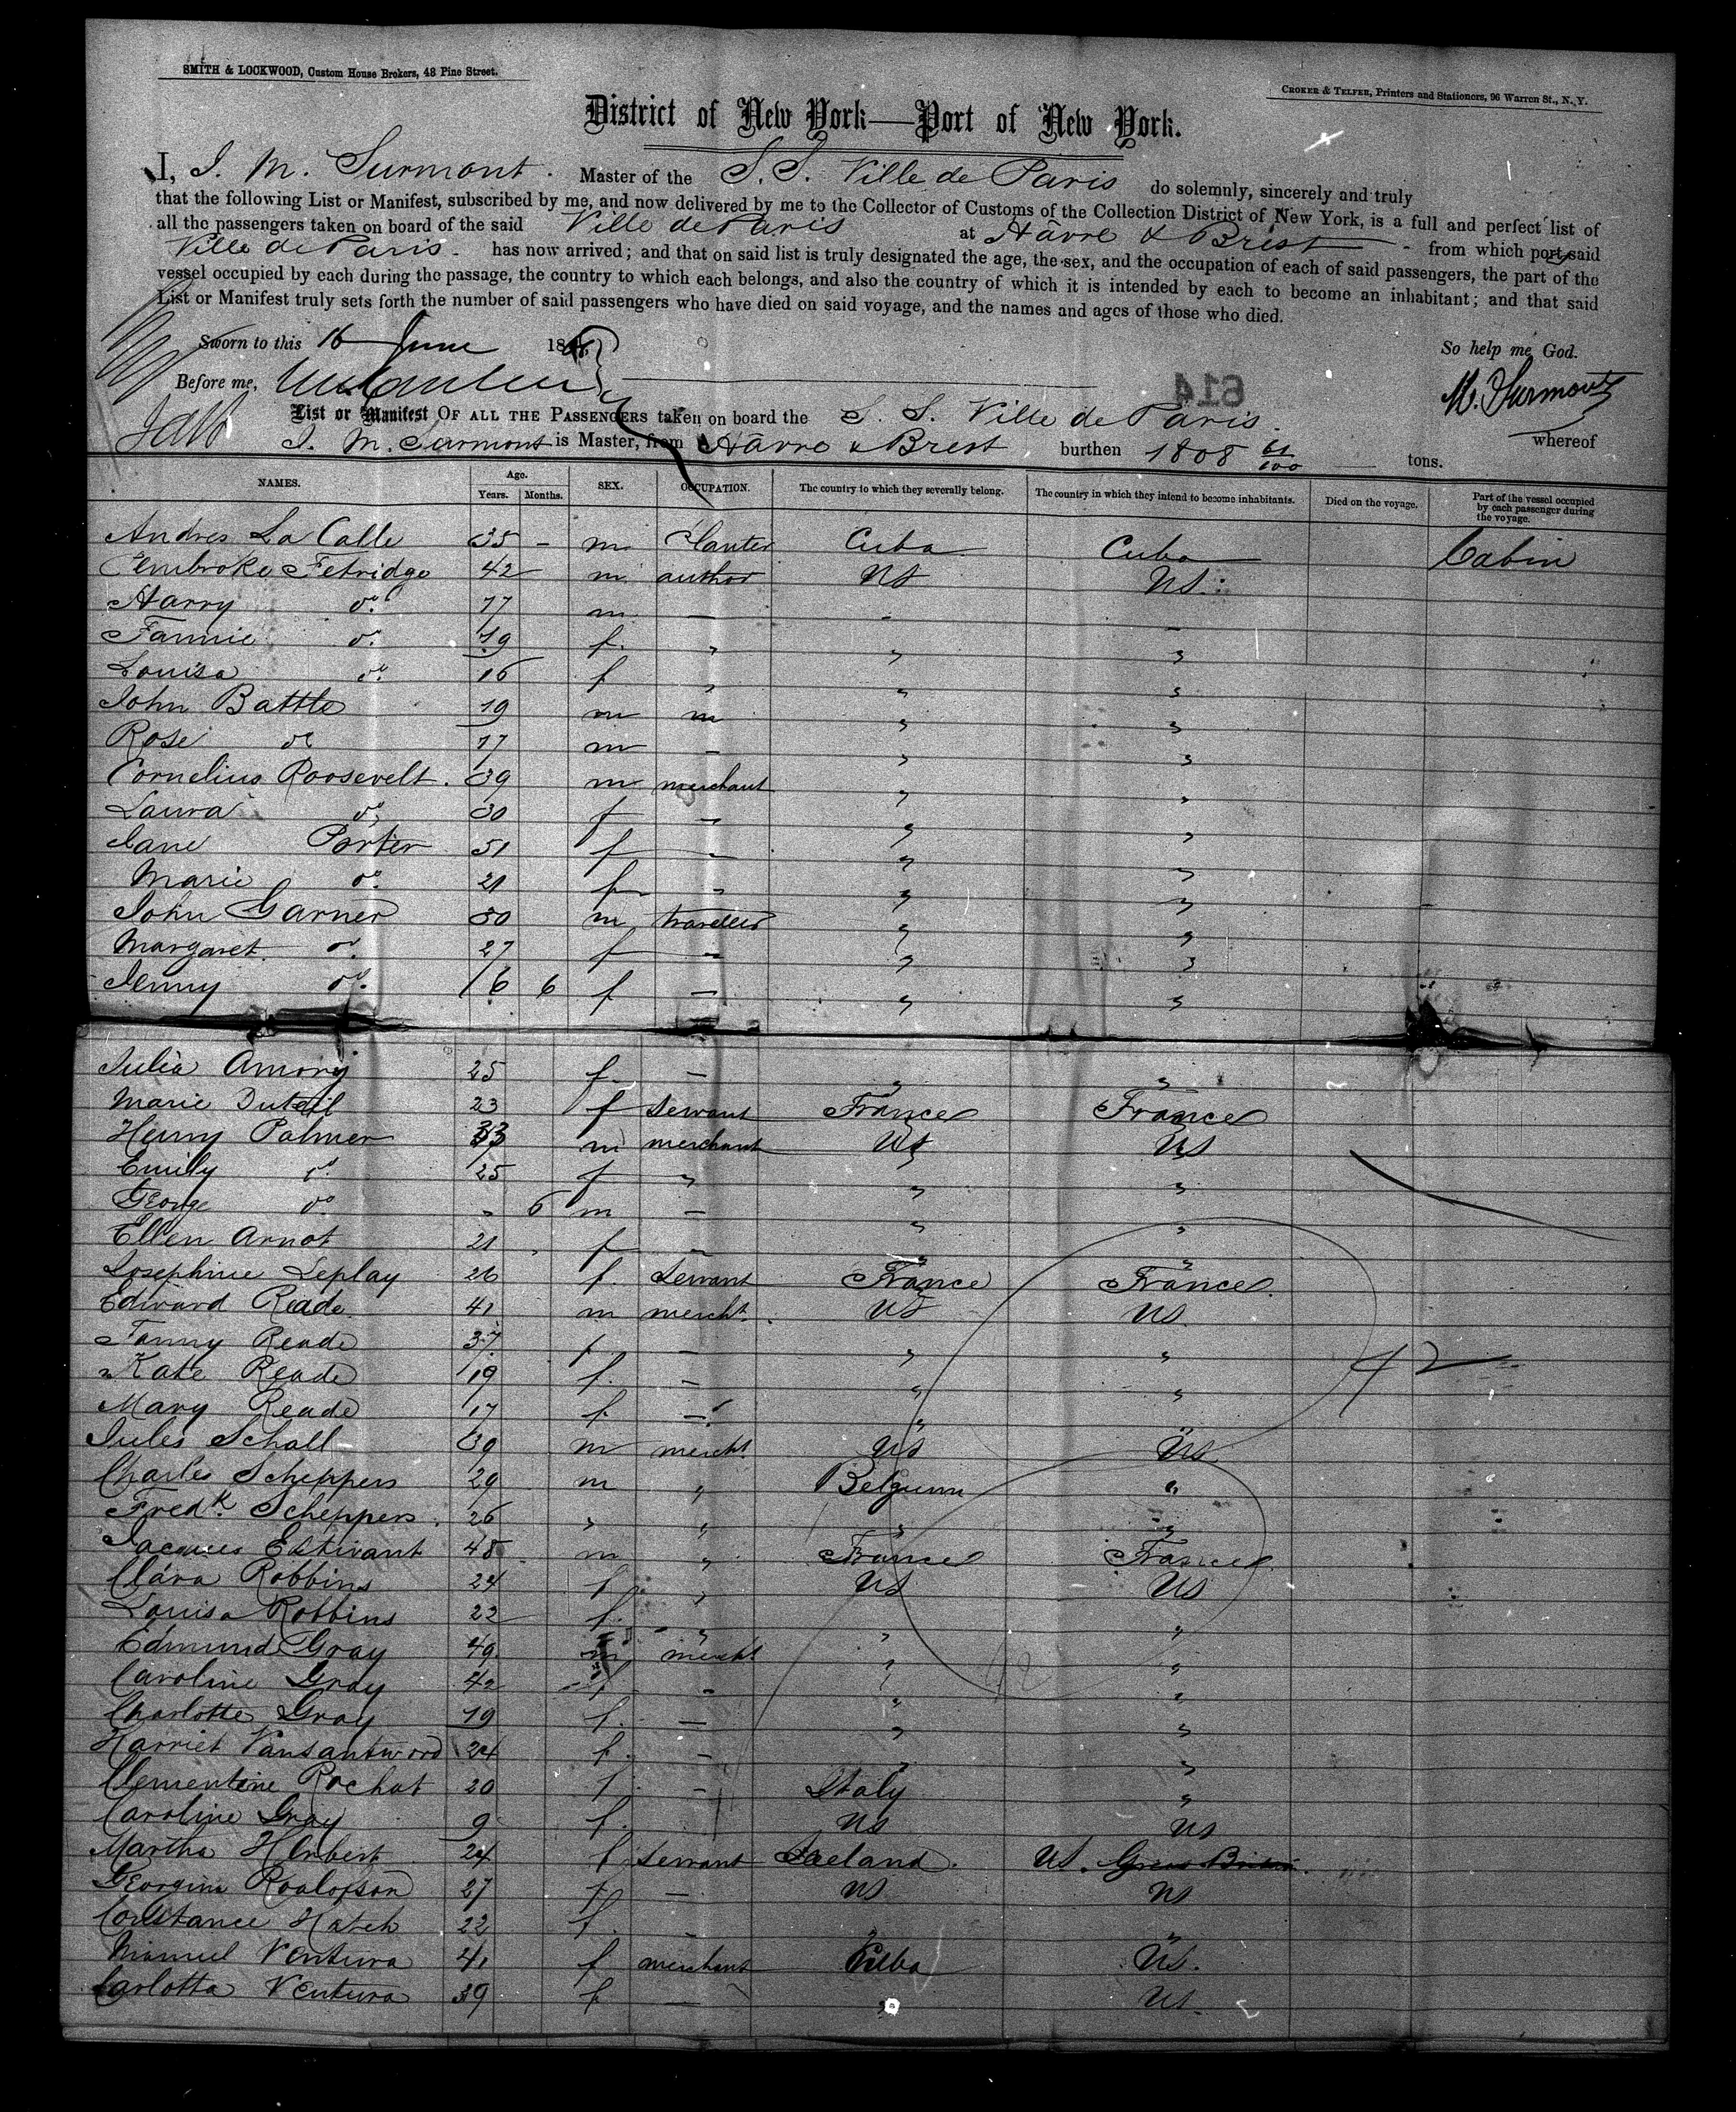 SMITH & LOCKWOOD, Custom House Brokers, 48 Pine Street.
CROKER & TELFER, Printers and Stationers, 96 Warren St., N. Y.
District of New York—Port of New York.
I, J. M. Surmont. Master of the S.S. Ville de Paris do solemnly, sincerely and truly
that the following List or Manifest, subscribed by me, and now delivered by me to the Collector of Customs of the Collection District of New York, is a full and perfect list of
all the passengers taken on board of the said Ville de Paris at Hâvre & Brest from which port said
Ville de Paris has now arrived; and that on said list is truly designated the age, the sex, and the occupation of each of said passengers, the part of the
vessel occupied by each during the passage, the country to which each belongs, and also the country of which it is intended by each to become an inhabitant; and that said
List or Manifest truly sets forth the number of said passengers who have died on said voyage, and the names and ages of those who died.
Sworn to this 16 June 18 So help me God.
Before me, M. Surmont
614
List or Manifest OF ALL THE PASSENGERS taken on board the S. S. Ville de Paris. whereof
J. M. Surmont is Master, from Havre & Brest burthen 1808 61/100 tons.
NAMES. Age. Years. Months. SEX. OCCUPATION. The country to which they severally belong. The country in which they intend to become inhabitants. Died on the voyage. Part of the vessel occupied by each passenger during the voyage.
Andres La Calle 35 - m Planter Cuba Cuba Cabin
Pembroke Fetridge 42 m author US US.
Harry do 17 m - - -
Fannie do 19 f. " " "
Louisa do 16 f " " "
John Battle 19 m m " "
Rose do 17 m - " "
Cornelius Roosevelt. 39 m merchant " "
Laura do 30 f - " "
Jane Porter 51 f - " "
Marie do 21 f " " "
John Garner 30 m traveller " "
Margaret do 27 f - " "
Jenny do 16 6 f - " "
Julia Amory 25 f. - " "
Marie Duteil 23 f servant France France
Henry Palmer 33 m merchant US US
Emily do 25 f " " "
George do - 6 m - " "
Ellen Arnot 21 f - " "
Josephine Leplay 26 f. servant France France.
Edward Reade 41 m mercht. US US.
Fanny Reade 37 f - " "
Kate Reade 19 f. - " "
42
Mary Reade 17 f. - " "
Jules Schall 39 m mercht. US US.
Charles Scheppers 29 m " Belgium "
Fredk. Scheppers. 26 " " " "
Jacques Estivant 48 m " France France
Clara Robbins 24 f. " US US
Louisa Robbins 22 f. " " "
Edmund Gray 49 m mercht " "
Caroline Gray 42 f - " "
Charlotte Gray 19 f. - " "
Harriet Vansantword 24 f. - " "
Clementine Rochat 20 f - Italy "
Caroline Gray 9 f. US US
Martha Herbert 24 f servant Ireland. US. Great Britain.
Georgine Roalofson 27 f - US US
Constance Hatch 22 f - " "
Manuel Ventura 41 f merchant Cuba US.
Carlotta Ventura 39 f - " US.